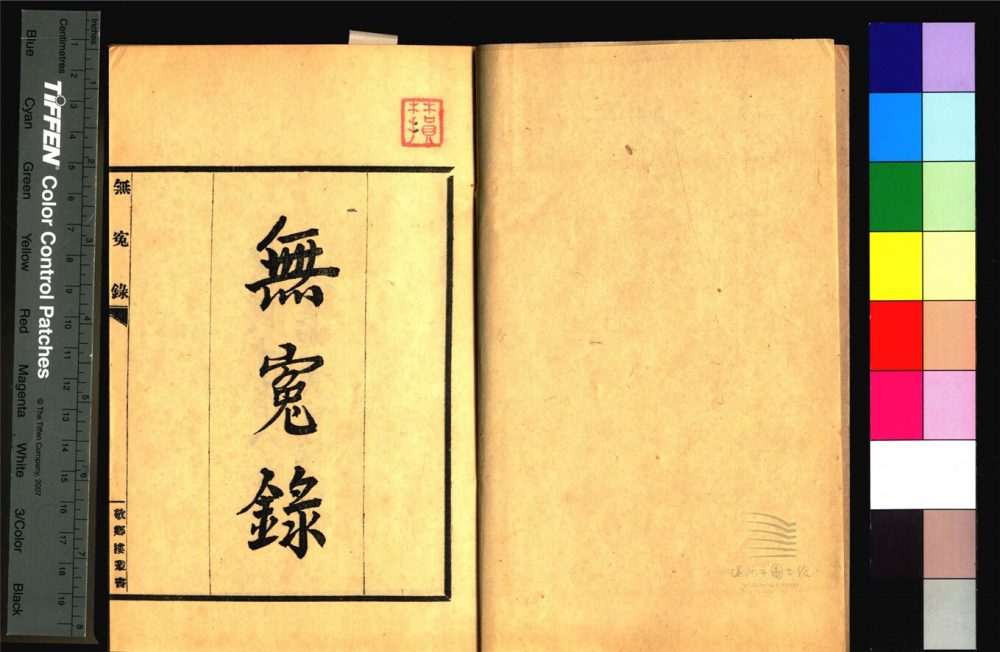 無冤錄
無冤錄
敬鄉樓叢書
Inches
Centimetres
TIFFEN® Color Control Patches
© The Tiffen Company, 2007
Blue
Cyan
Green
Yellow
Red
Magenta
White
3/Color
Black
1
2
3
4
5
6
7
8
9
10
11
12
13
14
15
16
17
18
19
1
2
3
4
5
6
7
8